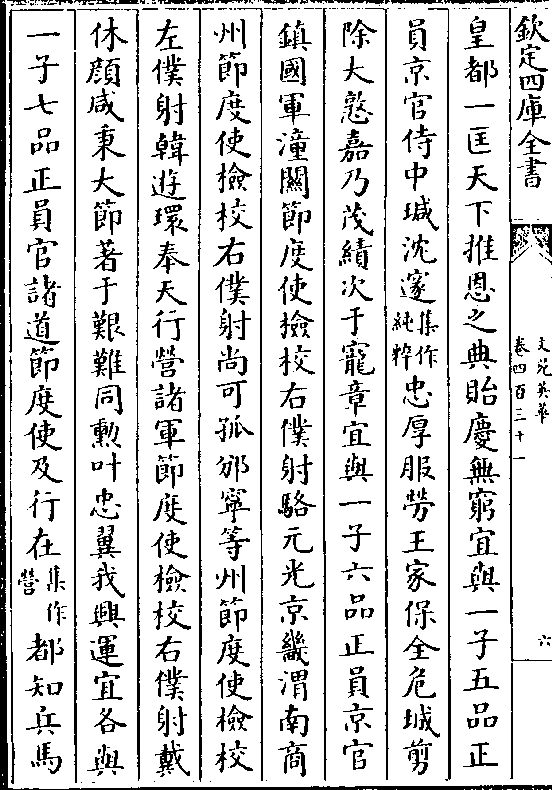 欽定四庫全書
文苑英華
卷四百三十一
六
皇都一匡天下推恩之典貽慶無窮宜與一子五品正
員京官侍中瑊沈邃集作純粹忠厚服勞王家保全危城剪
除大憝嘉乃茂績次于寵章宜與一子六品正員京官
鎮國軍潼關節度使撿校右僕射駱元光京畿渭南商
州節度使撿校右僕射尚可孤邠寧等州節度使檢校
左僕射韓遊瓌奉天行營諸軍節度使檢校右僕射戴
休顔咸秉大節著于艱難同勲叶忠翼我興運宜各與
一子七品正員官諸道節度使及行在集作營都知兵馬